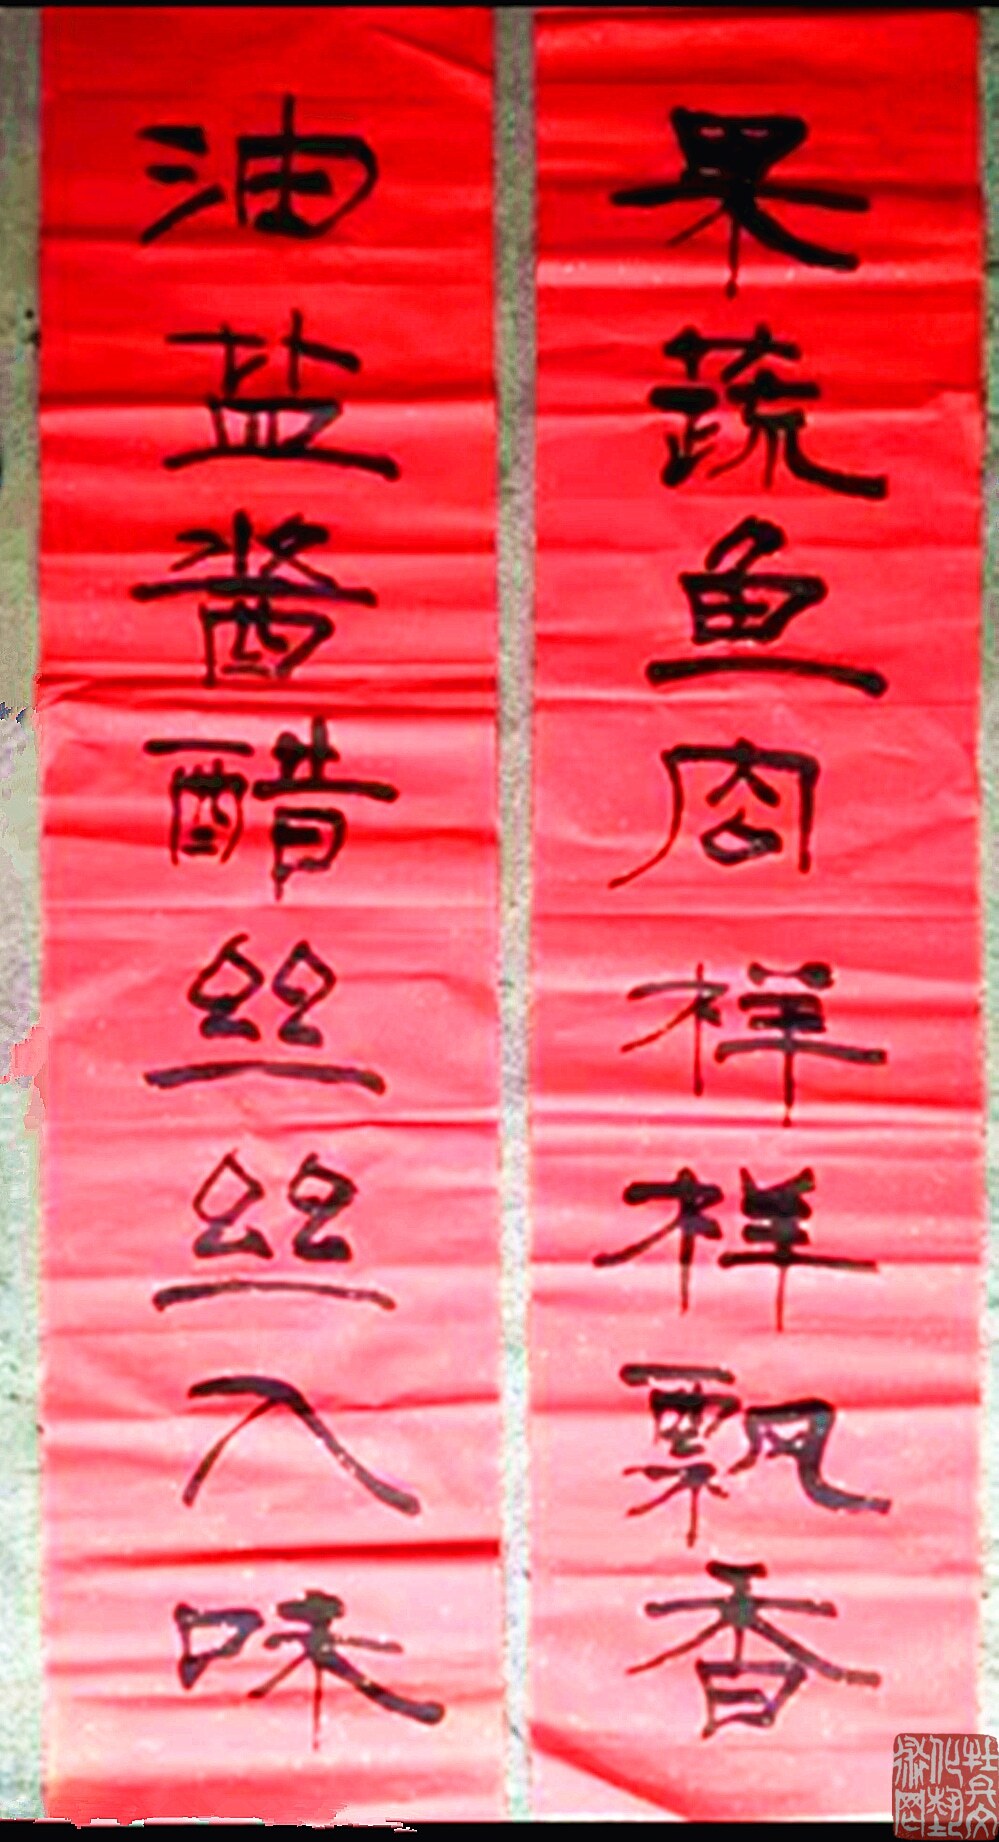 果蔬鱼肉样样飘香
油盐酱醋丝丝入味